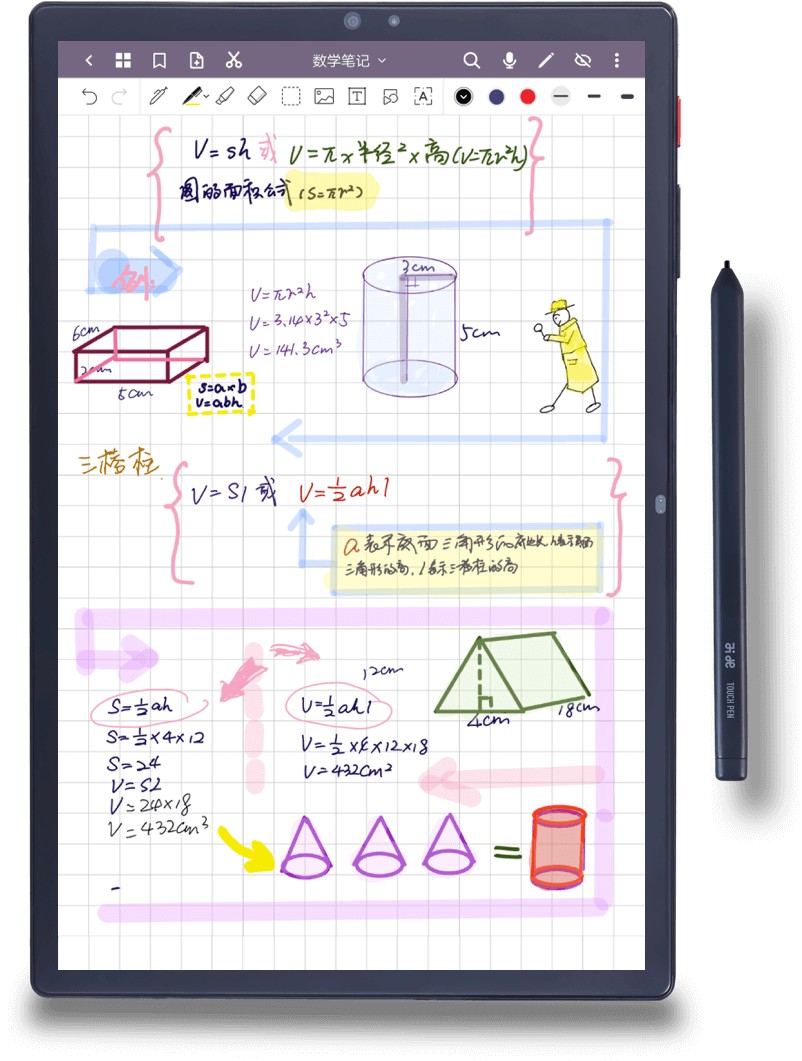 数学笔记
V=sh或 V=π×半径²×高(V=πr²h)
圆的面积公式(S=πr²)
例:
3cm
V=πr²h
V=3.14×3²×5
V=141.3cm³
5cm
6cm
5cm
S=a×b
V=abh
三棱柱
V=Sl或 V=½ahl
a表示底面三角形的底边长,h表示底面
三角形的高,l表示三棱柱的高
12cm
4cm
18cm
S=½ah
S=½×4×12
S=24
V=Sl
V=24×18
V=432cm³
V=½ahl
V=½×4×12×18
V=432cm²
=
TOUCH PEN